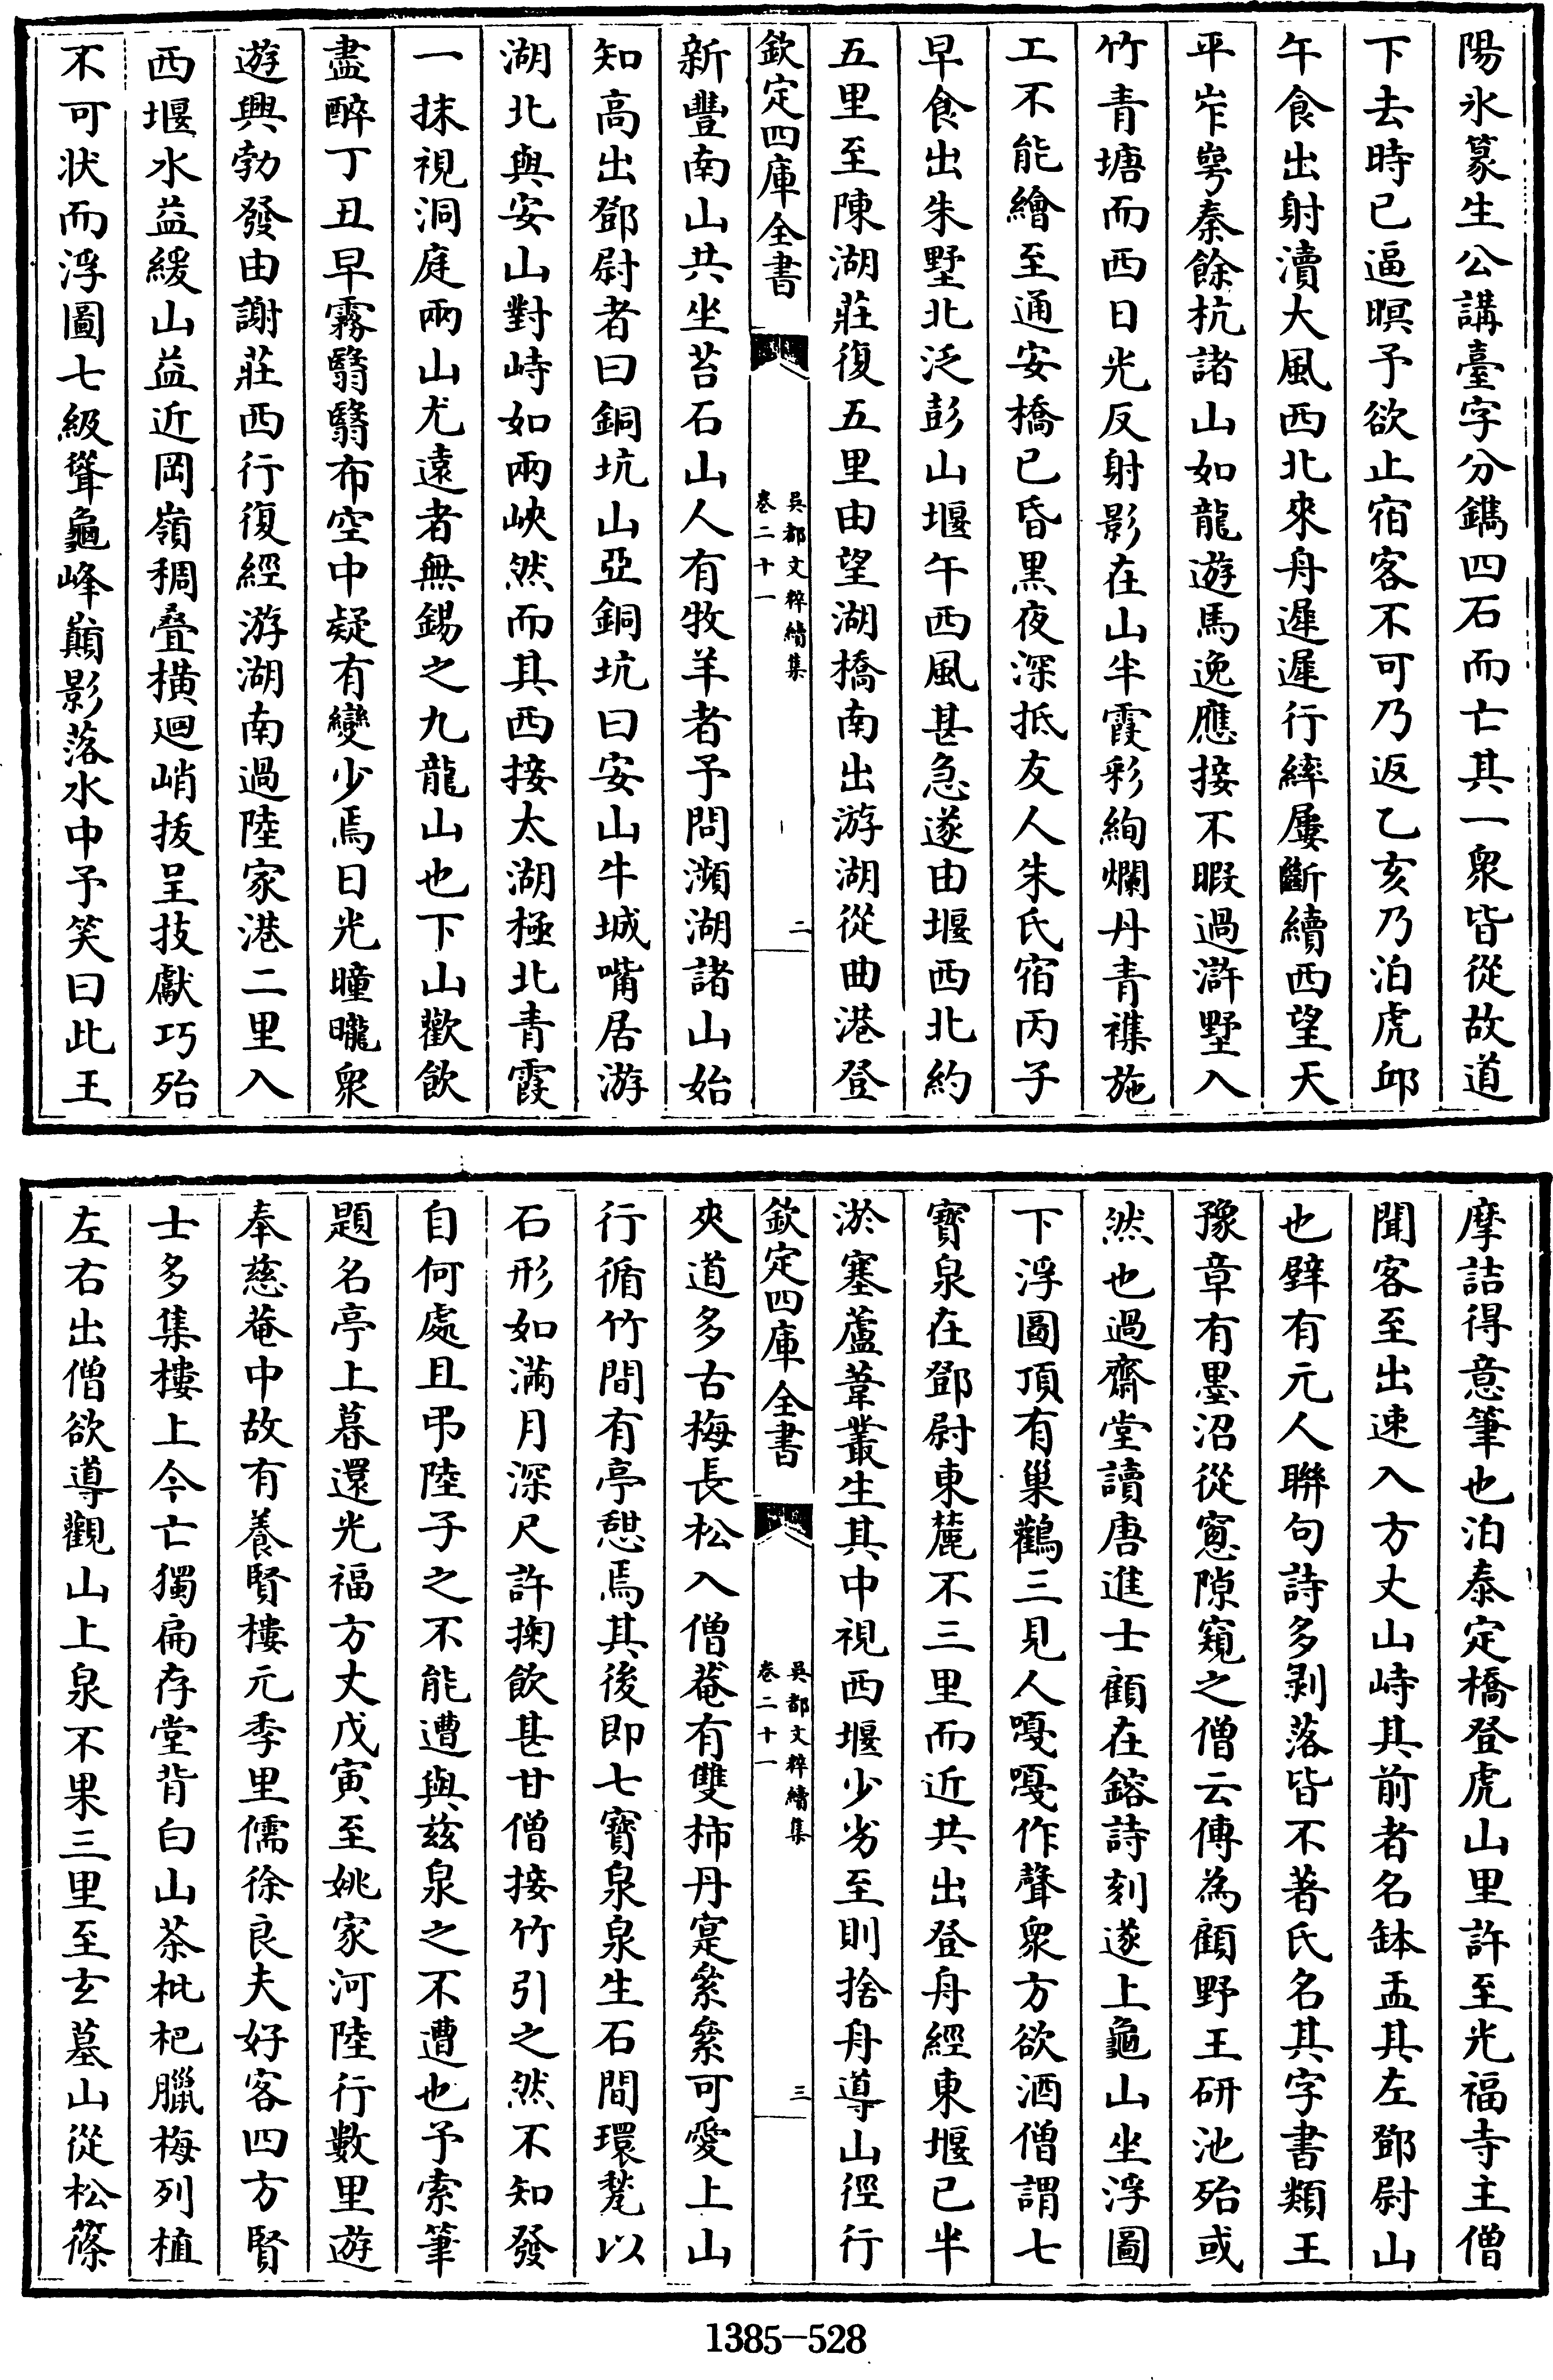 陽氷篆生公講臺字分鐫四石而亡其一衆皆從故道
下去時已逼暝予欲止宿客不可乃返乙亥乃泊虎邱
午食出射瀆大風西北來舟遲遲行繂屢斷續西望天
平岝崿秦餘杭諸山如龍遊馬逸應接不暇過滸墅入
竹青塘而西日光反射影在山半霞彩絢爛丹青襍施
工不能繪至通安橋已昏黑夜深抵友人朱氏宿丙子
早食出朱墅北泛彭山堰午西風甚急遂由堰西北約
五里至陳湖莊復五里由望湖橋南出游湖從曲港登
欽定四庫全書
吳都文粹續集
卷二十一
二
新豐南山共坐苔石山人有牧羊者予問瀕湖諸山始
知高出鄧尉者曰銅坑山亞銅坑曰安山牛城嘴居游
湖北與安山對峙如兩峽然而其西接太湖極北青霞
一抹視洞庭兩山尤遠者無錫之九龍山也下山歡飲
盡醉丁丑早霧翳翳布空中疑有變少焉日光曈曨衆
遊興勃發由謝莊西行復經游湖南過陸家港二里入
西堰水益緩山益近岡嶺稠疊橫迴峭拔呈技獻巧殆
不可狀而浮圖七級聳龜峰巔影落水中予笑曰此王
摩詰得意筆也泊泰定橋登虎山里許至光福寺主僧
聞客至出速入方丈山峙其前者名缽盂其左鄧尉山
也壁有元人聯句詩多剝落皆不著氏名其字書類王
豫章有墨沼從窻隙窺之僧云傳為顧野王研池殆或
然也過齋堂讀唐進士顧在鎔詩刻遂上龜山坐浮圖
下浮圖頂有巢鸛三見人嘎嘎作聲衆方欲酒僧謂七
寶泉在鄧尉東麓不三里而近共出登舟經東堰已半
淤塞蘆葦叢生其中視西堰少劣至則捨舟導山徑行
欽定四庫全書
吳都文粹續集
卷二十一
三
夾道多古梅長松入僧菴有雙柿丹寔纍纍可愛上山
行循竹間有亭憩焉其後即七寶泉泉生石間環甃以
石形如滿月深尺許掬飲甚甘僧接竹引之然不知發
自何處且弔陸子之不能遭與茲泉之不遭也予索筆
題名亭上暮還光福方丈戊寅至姚家河陸行數里遊
奉慈菴中故有養賢樓元季里儒徐良夫好客四方賢
士多集樓上今亡獨扁存堂背白山茶枇杷臘梅列植
左右出僧欲導觀山上泉不果三里至玄墓山從松篠
1385-528